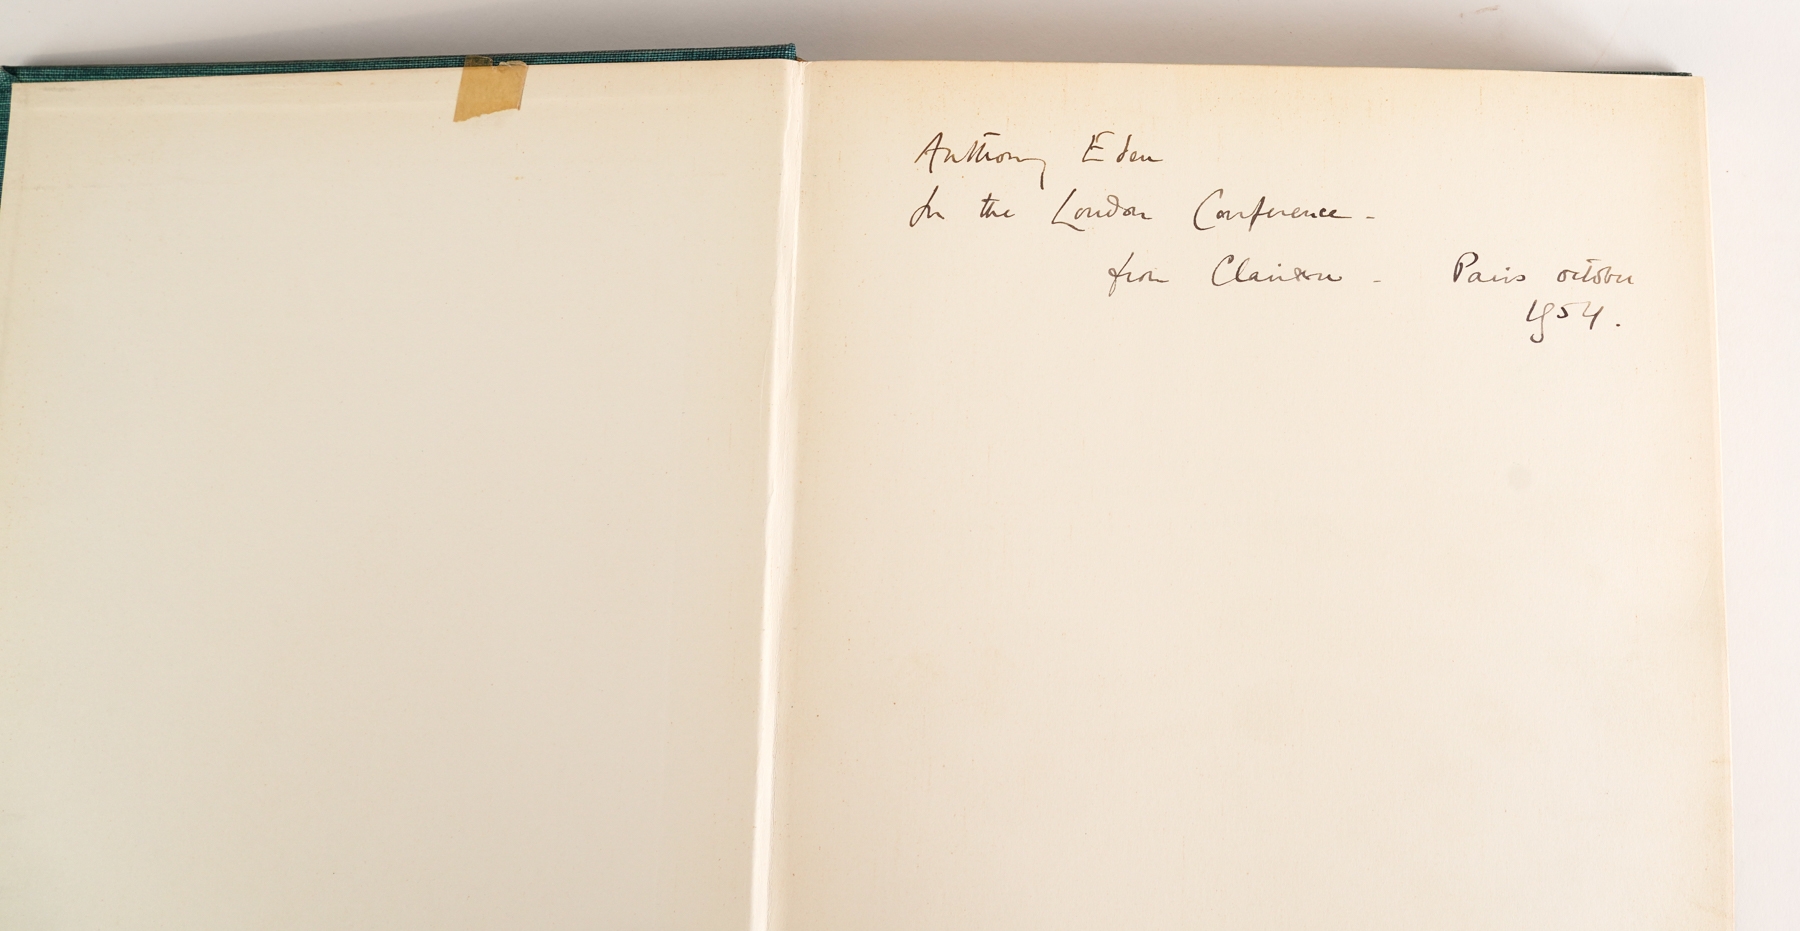 Anthony Eden
In the London Conference -
from Clarissa - Paris october
1954.